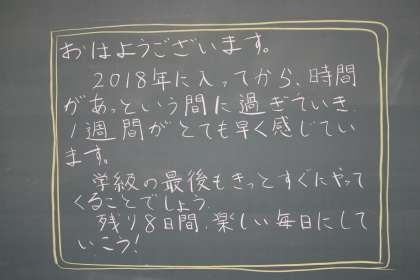 おはようございます。
2018年に入ってから、時間
があっという間に過ぎていき、
1週間がとても早く感じてい
ます。
学級の最後もきっとすぐにやって
くることでしょう。
残り8日間、楽しい毎日にして
いこう!